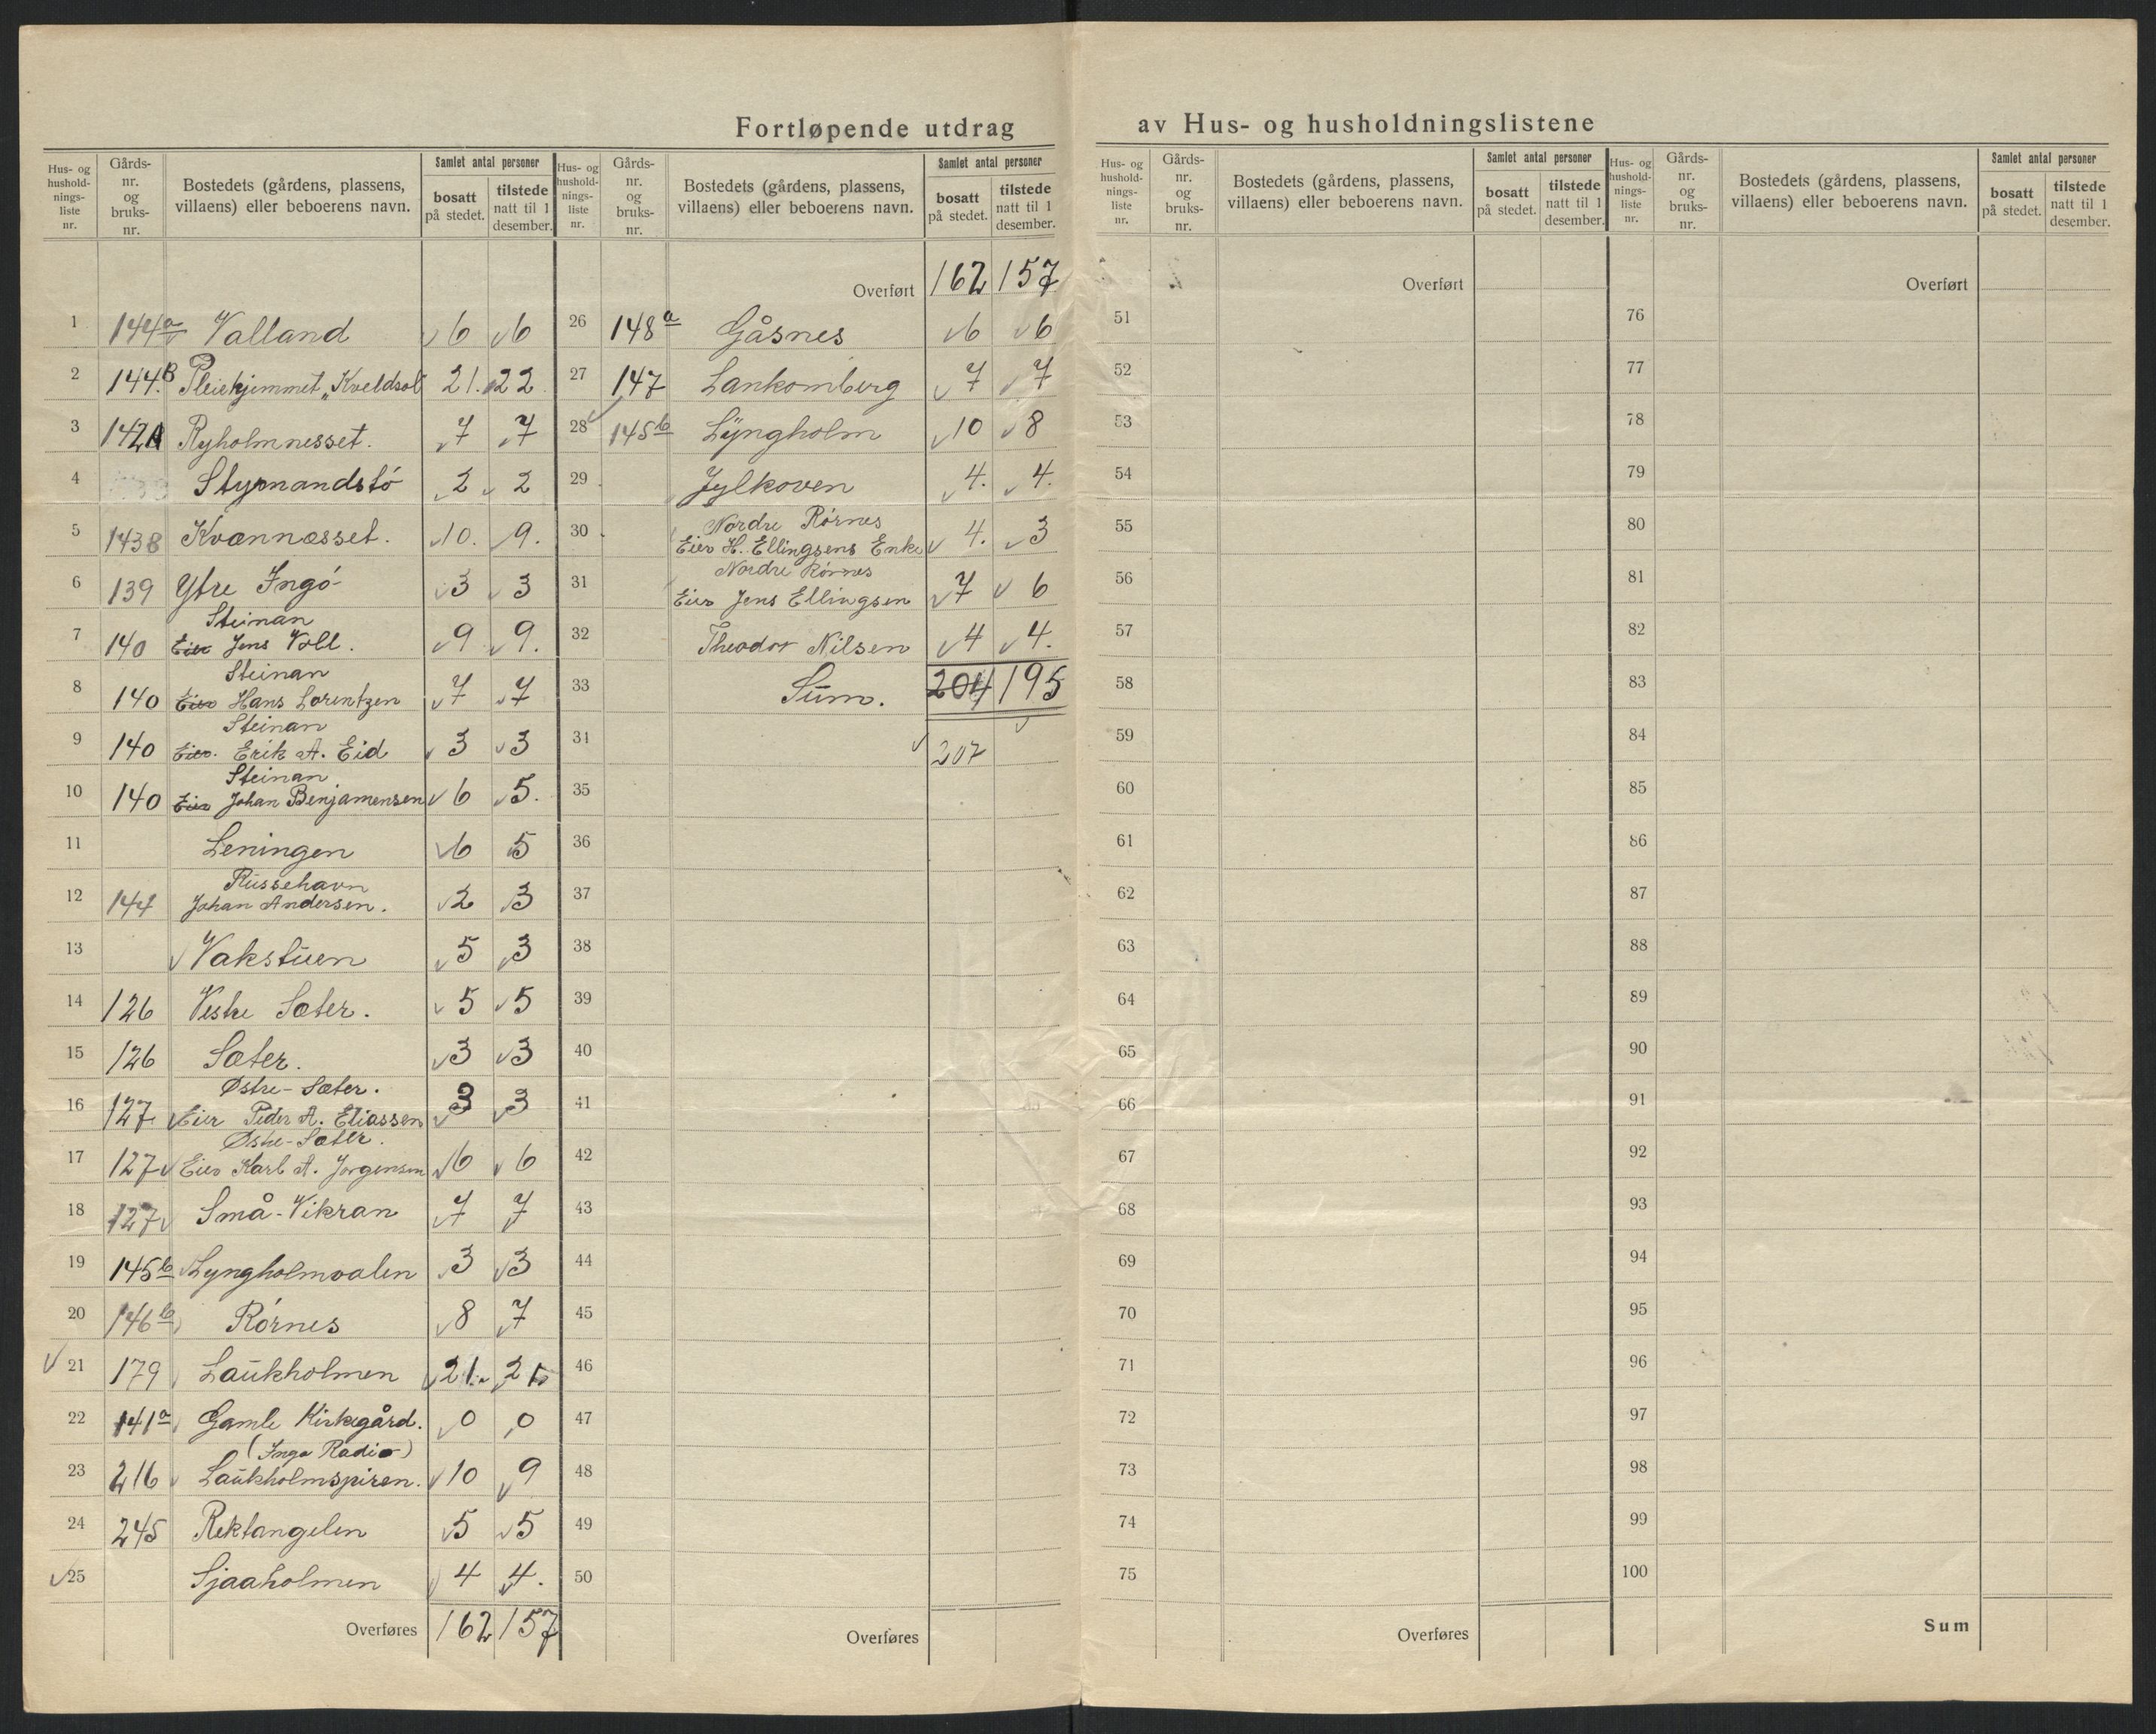 Fortløpende utdrag av Hus- og husholdningslistene
Hus- og hushold-nings-liste nr. Gårds-nr. og bruks-nr. Bostedets (gårdens, plassens, villaens) eller beboerens navn. Samlet antal personer bosatt på stedet. tilstede natt til 1 desember.
1 144a Valland 6 6
2 144.B Pleiehjemmet „Kveldsol 21. 22
3 142A Ryholmnesset. 7 7
4 Styrmandstø 2 2
5 143B Kvænnæsset. 10. 9.
6 139 Ytre Ingø 3 3
Steinan
7 140 Eier Jens Voll. 9 9.
Steinan
8 140 Eier Hans Lorentzen 7 7
Steinan
9 140 Eier. Erik A. Eid 3 3
Steinan
10 140 Eier Johan Benjamensen 6 5.
11 Leningen 6 5
Russehavn
12 144 Johan Andersen. 2 3
13 Vakstuen 5 3
14 126 Vestre Sæter. 5 5
15 126 Sæter. 3 3
Østre-Sæter.
16 127 Eier Peder A. Eliassen 3 3
Østre-Sæter.
17 127 Eier Karl A. Jørgensen 6 6
18 127 Små-Vikran 7 7
19 145b Lyngholmvalen 3 3
20 146b Rørnes 8 7
21 179 Laukholmen 21. 21
22 141a Gamle Kirkegård. 0 0
(Inga Radio)
23 216 Laukholmspiren. 10 9
24 245 Rektangelen 5 5
25 Sjaaholmen 4 4.
Overføres 162 157
Hus- og hushold-nings-liste nr. Gårds-nr. og bruks-nr. Bostedets (gårdens, plassens, villaens) eller beboerens navn. Samlet antal personer bosatt på stedet. tilstede natt til 1 desember.
Overført 162 157
26 148a Gåsnes 6 6
27 147 Lankomberg 7 7
28 145b Lyngholm 10 8
29 Jylkoven 4. 4.
Nordre Rørnes
30 Eier H. Ellingsens Enke 4. 3
Nordre Rørnes
31 Eier Jens Ellingsen 7 6
32 Theodor Nilsen 4 4.
33 Sum. 204 195
34 207
35
36
37
38
39
40
41
42
43
44
45
46
47
48
49
50
Overføres
Hus- og hushold-nings-liste nr. Gårds-nr. og bruks-nr. Bostedets (gårdens, plassens, villaens) eller beboerens navn. Samlet antal personer bosatt på stedet. tilstede natt til 1 desember.
Overført
51
52
53
54
55
56
57
58
59
60
61
62
63
64
65
66
67
68
69
70
71
72
73
74
75
Overføres
Hus- og hushold-nings-liste nr. Gårds-nr. og bruks-nr. Bostedets (gårdens, plassens, villaens) eller beboerens navn. Samlet antal personer bosatt på stedet. tilstede natt til 1 desember.
Overført
76
77
78
79
80
81
82
83
84
85
86
87
88
89
90
91
92
93
94
95
96
97
98
99
100
Sum